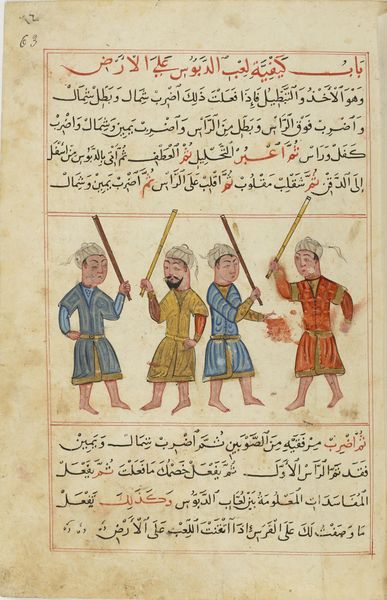 63
باب كيفية لعب الدبوس على الارض
وهو الاخذ والتبطيل فاذا فعلت ذلك اضرب شمال وبطل شمال
واضرب فوق الراس وبطل من الراس واضرب يمين وشمال واضرب
كفل وراس ثم اعبر التخليل ثم العطف ثم اتى بالدبوس من اسفل
الى الدقن ثم شقلب مقلوب ثم اقلب على الراس ثم اضرب يمين وشمال
ثم اضرب من فقيه من الصوبين ثم اضرب شمال ويمين
فقد تم الراس الاول ثم يفعل خصمك ما فعلت ثم يفعل
المفاسدات المعلومة بين لعاب الدبوس وكذلك يفعل
ما وصفت لك على الفرس اذا اتقنت اللعب على الارض